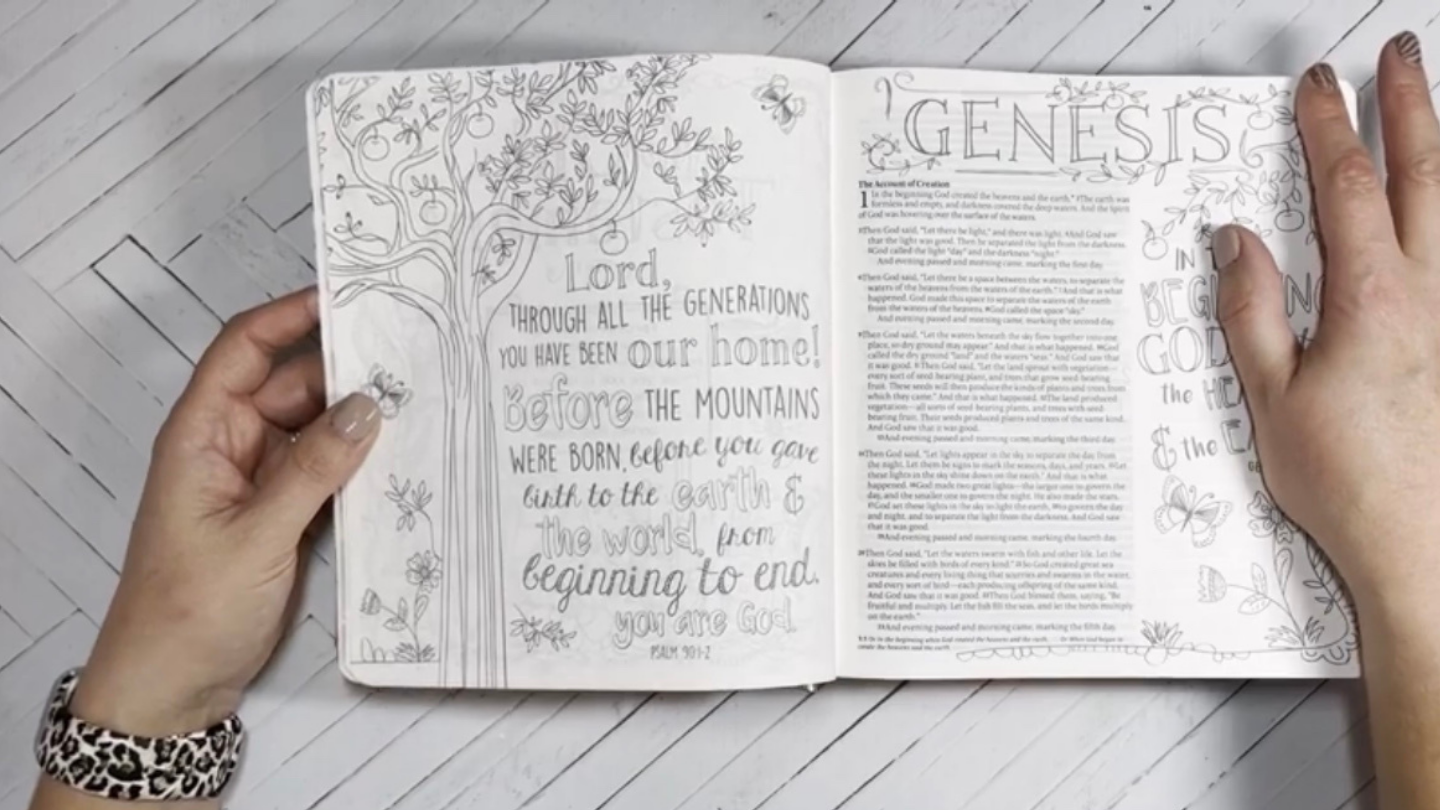 Lord,
THROUGH ALL THE GENERATIONS
YOU HAVE BEEN our home!
Before THE MOUNTAINS
WERE BORN, before you gave
birth to the earth &
the world, from
beginning to end,
you are God.
PSALM 90:1-2
GENESIS
The Account of Creation
1 In the beginning God created the heavens and the earth.* 2The earth was
formless and empty, and darkness covered the deep waters. And the Spirit
of God was hovering over the surface of the waters.
3Then God said, "Let there be light," and there was light. 4And God saw
that the light was good. Then he separated the light from the darkness.
5God called the light "day" and the darkness "night."
And evening passed and morning came, marking the first day.
6Then God said, "Let there be a space between the waters, to separate the
waters of the heavens from the waters of the earth." 7And that is what
happened. God made this space to separate the waters of the earth
from the waters of the heavens. 8God called the space "sky."
And evening passed and morning came, marking the second day.
9Then God said, "Let the waters beneath the sky flow together into one
place, so dry ground may appear." And that is what happened. 10God
called the dry ground "land" and the waters "seas." And God saw that
it was good. 11Then God said, "Let the land sprout with vegetation—
every sort of seed-bearing plant, and trees that grow seed-bearing
fruit. These seeds will then produce the kinds of plants and trees from
which they came." And that is what happened. 12The land produced
vegetation—all sorts of seed-bearing plants, and trees with seed-
bearing fruit. Their seeds produced plants and trees of the same kind.
And God saw that it was good.
13And evening passed and morning came, marking the third day.
14Then God said, "Let lights appear in the sky to separate the day from
the night. Let them be signs to mark the seasons, days, and years. 15Let
these lights in the sky shine down on the earth." And that is what
happened. 16God made two great lights—the larger one to govern the
day, and the smaller one to govern the night. He also made the stars.
17God set these lights in the sky to light the earth, 18to govern the day
and night, and to separate the light from the darkness. And God saw
that it was good.
19And evening passed and morning came, marking the fourth day.
20Then God said, "Let the waters swarm with fish and other life. Let the
skies be filled with birds of every kind." 21So God created great sea
creatures and every living thing that scurries and swarms in the water,
and every sort of bird—each producing offspring of the same kind.
And God saw that it was good. 22Then God blessed them, saying, "Be
fruitful and multiply. Let the fish fill the seas, and let the birds multiply
on the earth."
23And evening passed and morning came, marking the fifth day.
1:1 Or In the beginning when God created the heavens and the earth, . . . Or When God began to
create the heavens and the earth, . . .
IN
GOD
the
& the